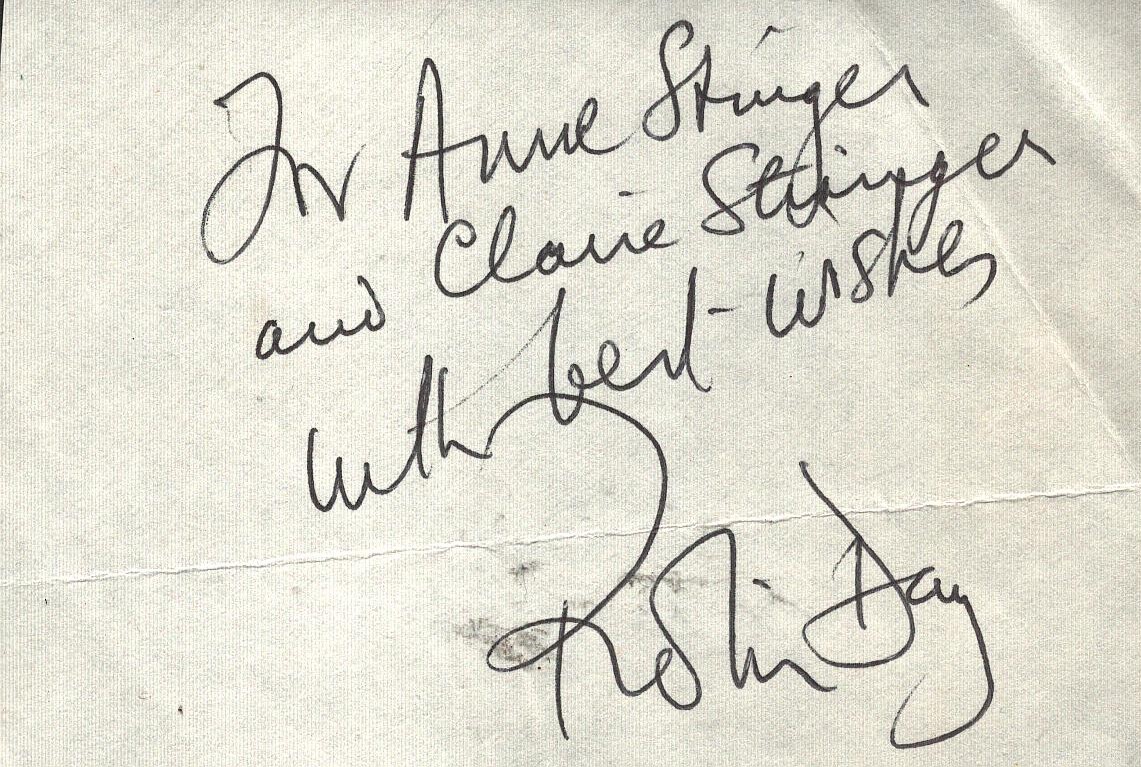 For Anne Stringer
and Claire Stringer
with best wishes
Robin Day